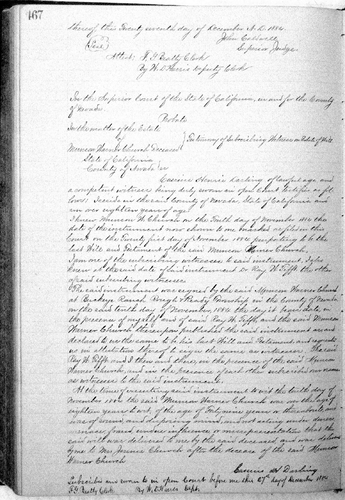 467
through this Twenty seventh day of December A.D. 1886.
(Seal) John Caldwell
Superior Judge.
Attest: F. G. Beatty Clerk
By W. D. Harris Deputy Clerk
In the Superior Court of the State of California, in and for the County
of Nevada.
Probate
In the matter of the Estate
of Testimony of Subscribing Witness on Probate of Will.
Merman Warner Church Deceased
State of California
County of Nevada ss
Darling of lawful age and
a competent witness being duly sworn in open Court testifies as fol
lows: I reside in the said County of Nevada, State of California and
am over eighteen years of age.
I knew W. Church on the Tenth day of November 1886 the
date of the instrument now shown to me marked as filed in this
Court on the Twenty first day of November 1886 purporting to be the
last Will and Testament of the said Warner Church.
I am one of the subscribing witnesses to said instrument. I also
knew at the said date of said instrument Ray W. Tifft the other
subscribing witness.
The said instrument was signed by the said Warner Church
at Buckeye Ranch Rough & Ready Township in the County of Nevada
on the said tenth day of November 1886, the day it bears date, in
the presence of myself and of said Ray W. Tifft and the said
Warner Church thereupon published the said instrument as and
declared to us the same to be his last Will and Testament and requests
us in attestation thereof to sign the same as witnesses. The said
Ray W. Tifft and I then and there, in the presence of the said
Warner Church, and in the presence of each other subscribed our names
as witnesses to the said instrument.
At the time of executing said instrument to wit the tenth day of
November 1886 the said Warner Church was over the age of
eighteen years to wit, of the age of years or thereabouts and
was of sound and disposing mind and not acting under duress
menace, fraud, undue influence or misrepresentation that the
said will was delivered to me by the said deceased and was deliver
ed by me to Mr. after the decease of the said
Warner Church
Darling
Subscribed and sworn to in open Court before me this 27th day of December 1886
F. G. Beatty Clerk By W. D. Harris Dept.